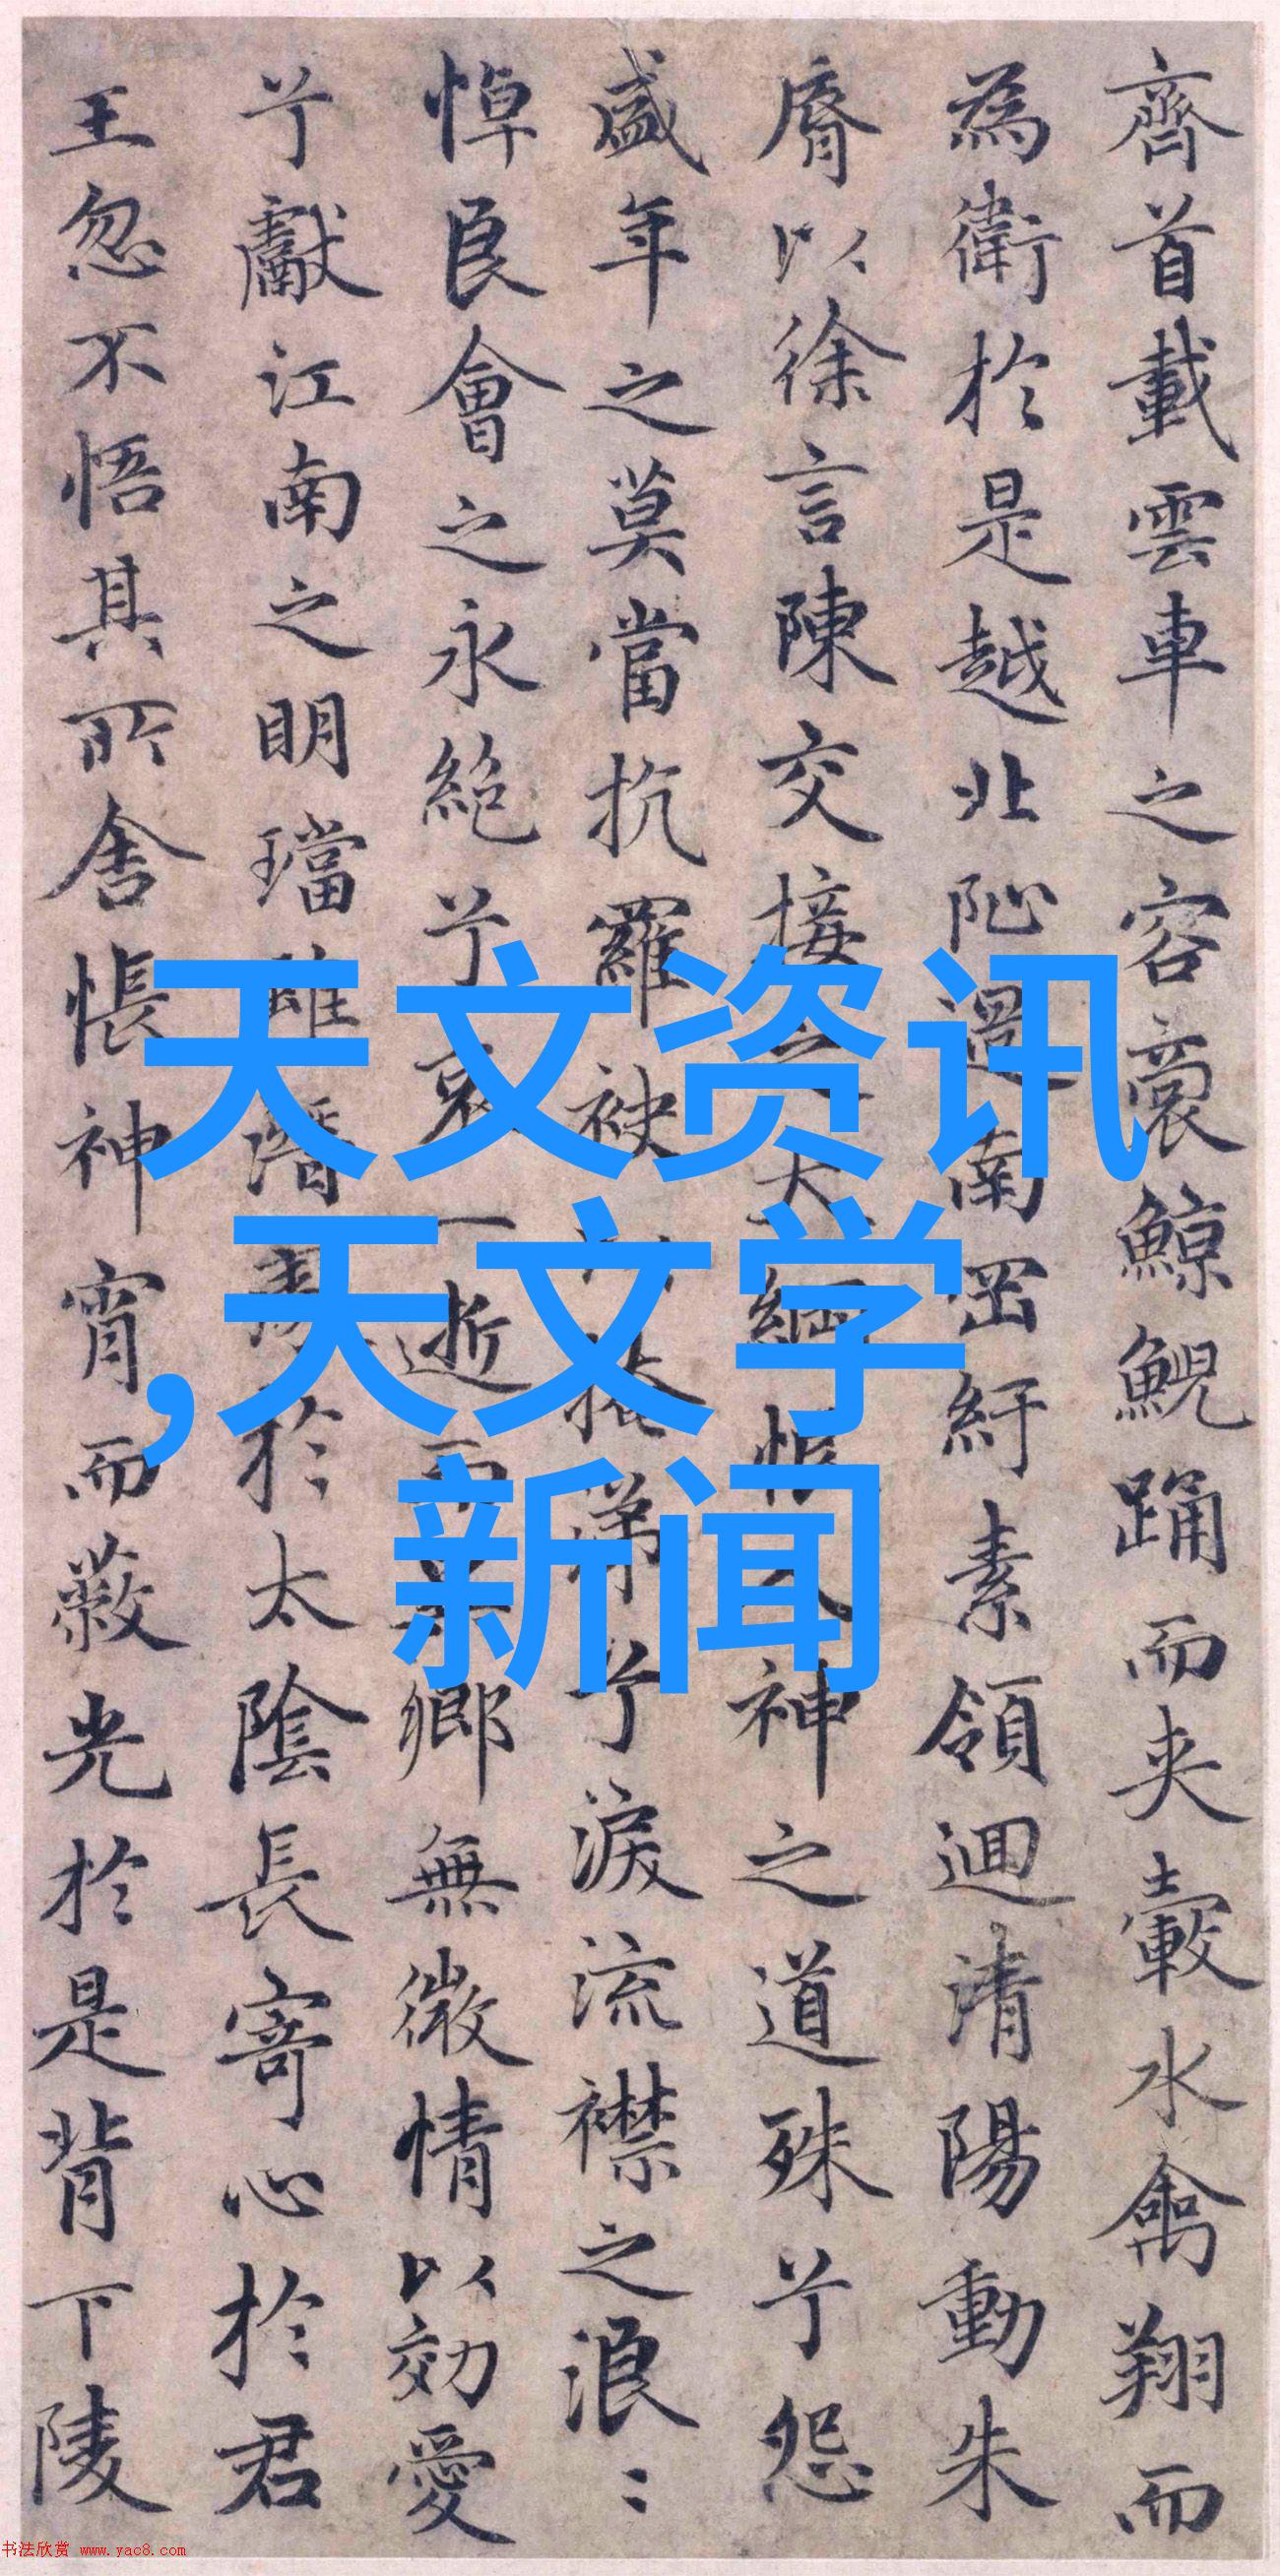 齊首載雲車之容裔鯨鯢踊而夾轂水禽翔而
為衛於是越北沚過南岡紆素領迴清陽動朱
脣以徐言陳交接之大綱恨人神之道殊兮怨
盛年之莫當抗羅袂以掩涕兮淚流襟之浪〻
悼良會之永絕兮哀一逝而異鄉無微情以効愛
兮獻江南之明璫雖潛處於太陰長寄心於君
王忽不悟其所舍悵神宵而蔽光於是背下陵
天文资讯
,天文学
新闻
书法欣赏 www.yac8.com